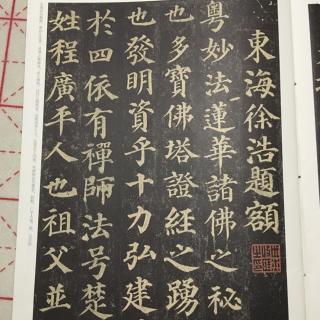 東海徐浩題額
粵妙法蓮華諸佛之祕
也多寶佛塔證經之踴
也發明資乎十力弘建
於四依有禪師法号楚
姓程廣平人也祖父並